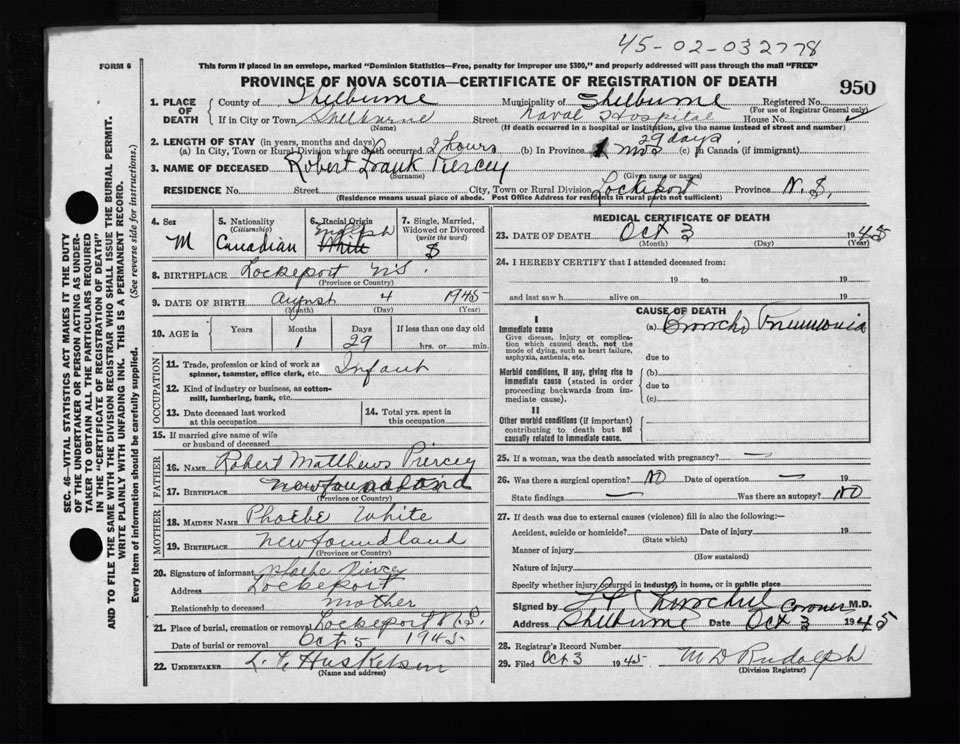 45-02-032778
FORM 6
This form if placed in an envelope, marked "Dominion Statistics—Free, penalty for improper use $300," and properly addressed will pass through the mail "FREE"
PROVINCE OF NOVA SCOTIA—CERTIFICATE OF REGISTRATION OF DEATH
950
1. PLACE OF DEATH
County of Shelburne Municipality of Shelburne Registered No.
(For use of Registrar General only)
If in City or Town Shelburne Street Naval Hospital House No.
(Name) (If death occurred in a hospital or institution, give the name instead of street and number)
2. LENGTH OF STAY (in years, months and days)
(a) In City, Town or Rural Division where death occurred 2 hours (b) In Province 1 mos 29 days (c) in Canada (if immigrant)
3. NAME OF DECEASED Robert Frank Piercey
(Surname) (Given name or names)
RESIDENCE No. Street City, Town or Rural Division Lockeport Province N.S.
(Residence means usual place of abode. Post Office Address for residents in rural parts not sufficient)
4. Sex M
5. Nationality (Citizenship) Canadian
6. Racial Origin English White
7. Single, Married, Widowed or Divorced (write the word) S
8. BIRTHPLACE Lockeport N.S.
(Province or Country)
9. DATE OF BIRTH August 4 1945
(Month) (Day) (Year)
10. AGE in Years Months Days If less than one day old
1 29 hrs. or min.
OCCUPATION
11. Trade, profession or kind of work as spinner, teamster, office clerk, etc. Infant
12. Kind of industry or business, as cotton-mill, lumbering, bank, etc.
13. Date deceased last worked at this occupation
14. Total yrs. spent in this occupation
15. If married give name of wife or husband of deceased
FATHER
16. NAME Robert Matthews Piercey
17. BIRTHPLACE Newfoundland
(Province or Country)
MOTHER
18. MAIDEN NAME Phoebe White
19. BIRTHPLACE Newfoundland
(Province or Country)
20. Signature of informant Phoebe Piercey
Address Lockeport
Relationship to deceased mother
21. Place of burial, cremation or removal Lockeport N.S.
Date of burial or removal Oct 5 1945
22. UNDERTAKER
(Name and address)
MEDICAL CERTIFICATE OF DEATH
23. DATE OF DEATH Oct 3 1945
(Month) (Day) (Year)
24. I HEREBY CERTIFY that I attended deceased from:
19 to 19
and last saw h alive on 19
CAUSE OF DEATH
I
Immediate cause
Give disease, injury or complication which caused death, not the mode of dying, such as heart failure, asphyxia, asthenia, etc.
(a) Broncho Pneumonia
due to
Morbid conditions, if any, giving rise to immediate cause (stated in order proceeding backwards from immediate cause).
(b)
due to
(c)
II
Other morbid conditions (if important) contributing to death but not causally related to immediate cause.
25. If a woman, was the death associated with pregnancy? —
26. Was there a surgical operation? NO Date of operation — 19
State findings — Was there an autopsy? NO
27. If death was due to external causes (violence) fill in also the following:—
Accident, suicide or homicide? Date of injury 19
(State which)
Manner of injury
(How sustained)
Nature of injury
Specify whether injury occurred in industry, in home, or in public place
Signed by Coroner M.D.
Address Shelburne Date Oct 3 1945
28. Registrar's Record Number
29. Filed Oct 3 1945 M D Rudolph
(Division Registrar)
SEC. 46—VITAL STATISTICS ACT MAKES IT THE DUTY
OF THE UNDERTAKER OR PERSON ACTING AS UNDER-
TAKER TO OBTAIN ALL THE PARTICULARS REQUIRED
IN THE "CERTIFICATE OF REGISTRATION OF DEATH"
AND TO FILE THE SAME WITH THE DIVISION REGISTRAR WHO SHALL ISSUE THE BURIAL PERMIT.
WRITE PLAINLY WITH UNFADING INK. THIS IS A PERMANENT RECORD.
Every item of information should be carefully supplied. (See reverse side for instructions.)